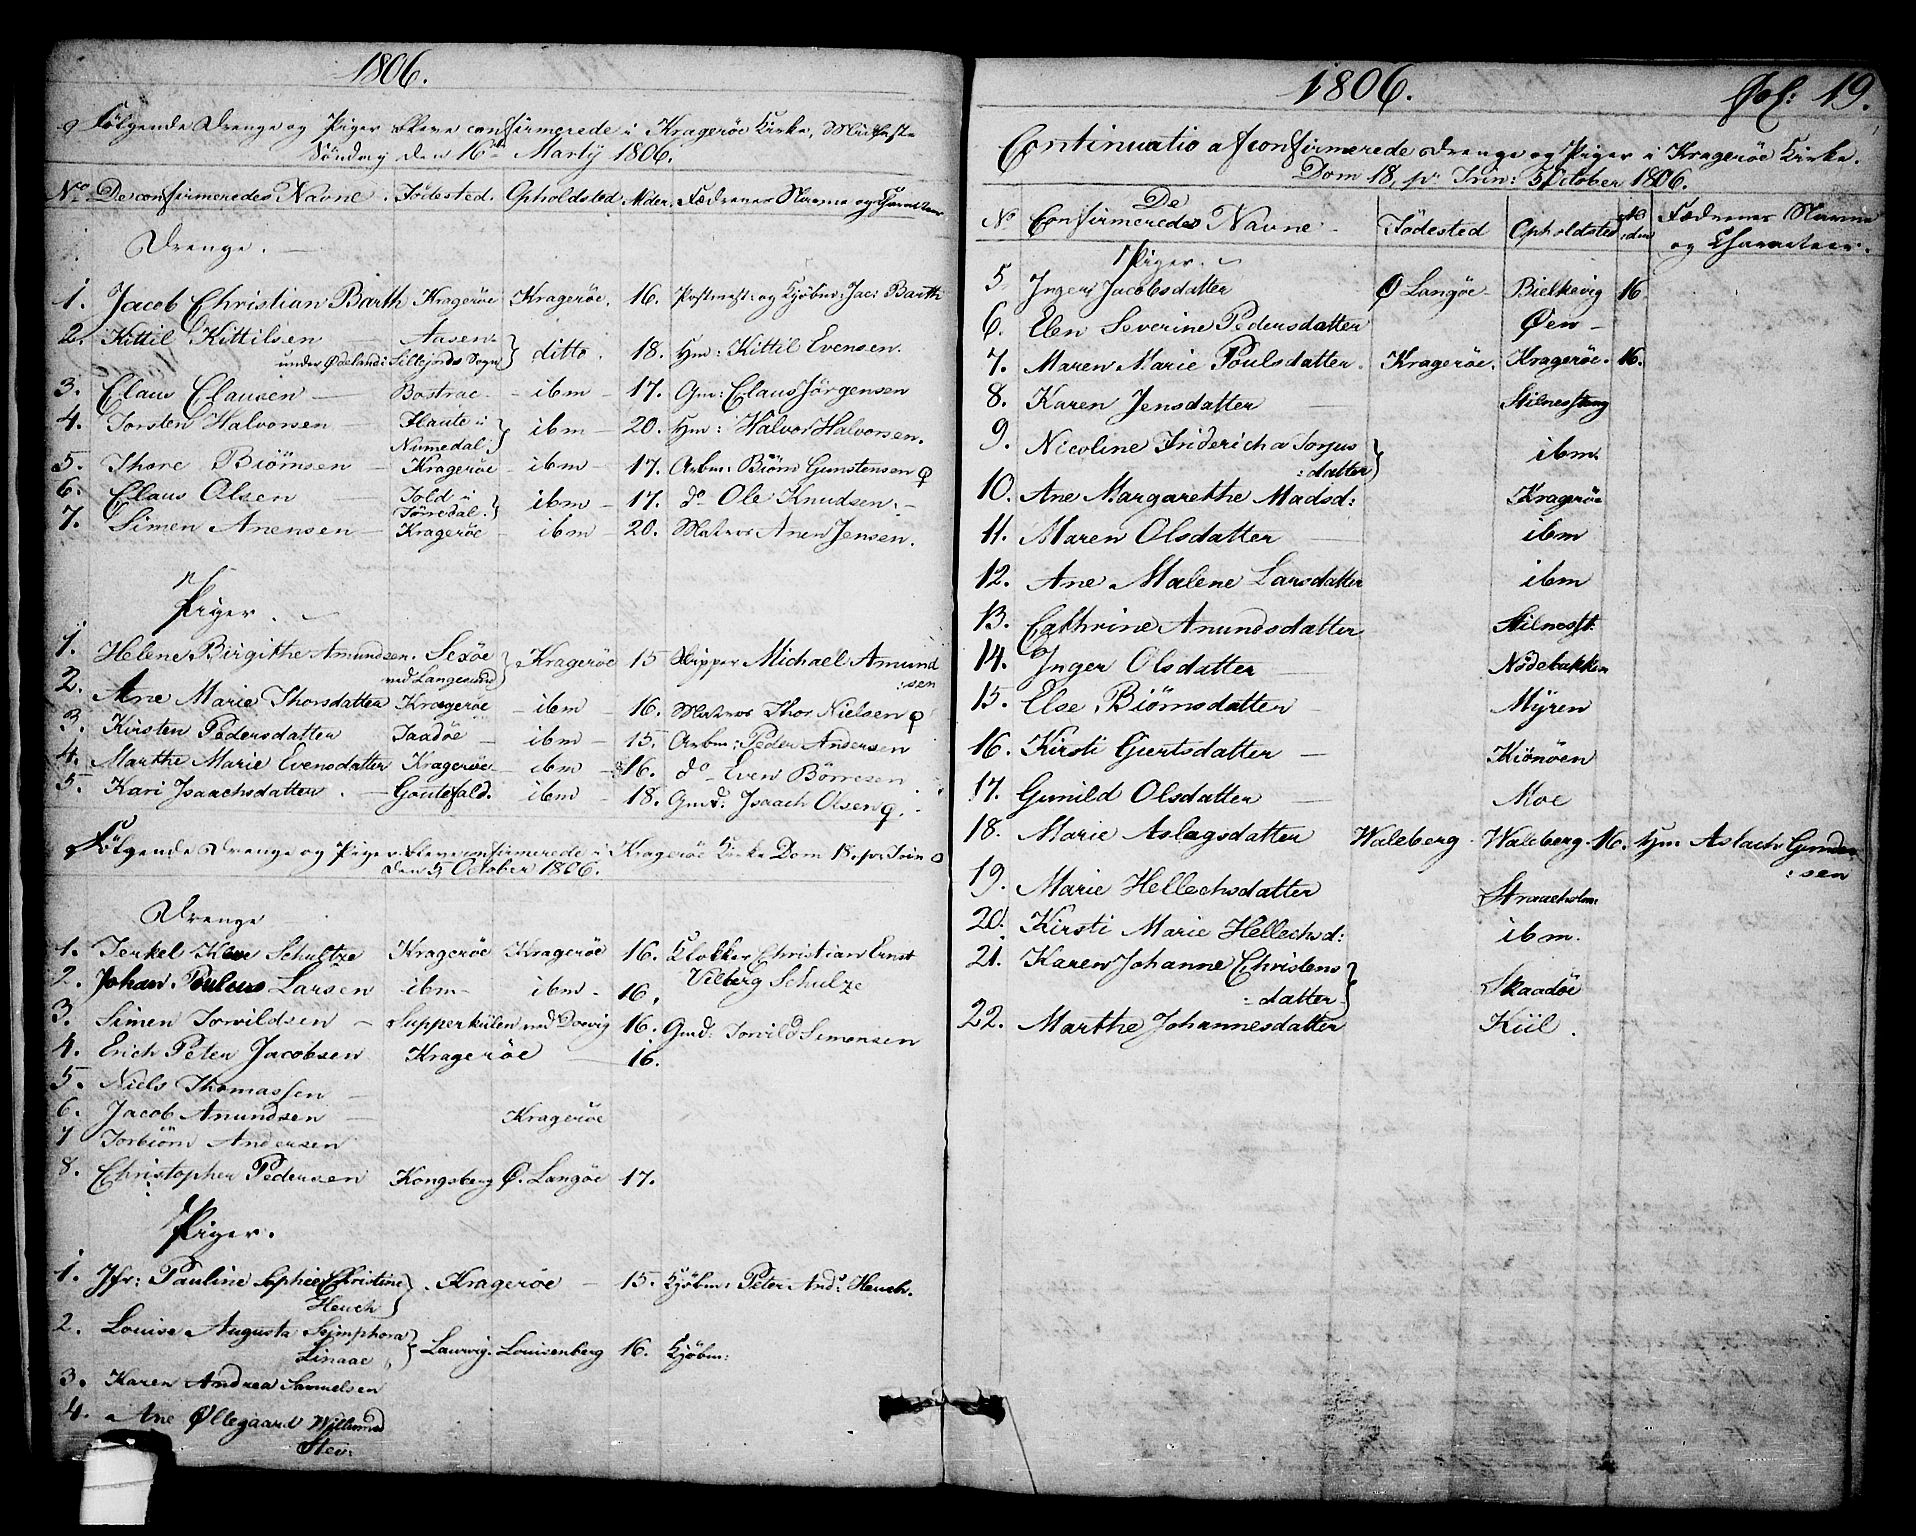 1806.
Følgende Drenge og Piger bleve confirmerede i Kragerøe Kirke, Midfaste
Søndag den 16de Martij 1806.
No De confirmeredes Navne. Fødested. Opholdsted Alder. Fædrenes Navne og Charakteer
Drenge.
1. Jacob Christian Barth Kragerøe Kragerøe. 16. Postmest: og Kjøbm: Jac: Barth
2. Kittil Kittilsen Aasen
under Ødeland i Sillejords Sogn } ditto. 18. Hm: Kittil Evensen.
3. Claus Clausen Bostrac - ibm - 17. Gm: Claus Jørgensen
4. Torsten Halvorsen Flaate i
Numedal } ibm - 20. Hm: Halvor Halvorsen.
5. Thore Biørnsen Kragerøe - ibm - 17. Arbm: Biørn Gunstensen
6. Claus Olsen Told i
Tørredal. } ibm - 17. do Ole Knudsen.
7. Simen Anensen Kragerøe - ibm - 20. Matros Anen Jensen.
Piger.
1. Helene Birgithe Amundsen. Sexøe
ved Langesund } Kragerøe 15 Skipper Michael Amund
:sen
2. Ane Marie Thorsdatter Kragerøe - ibm - 16. Matros Thor Nielsen
3. Kirsten Pedersdatter Taadøe - ibm - 15. Arbm: Peder Andersen
4. Marthe Marie Evensdatter Kragerøe - ibm - 16. do Even Børresen
5. Kari Isaachsdatter. Goutefald. ibm - 18. Gmd: Isaach Olsen
Følgende Drenge og Piger bleve confirmerede i Kragerøe Kirke Dom 18. p. Trin
den 5 October 1806.
Drenge
1. Terkel Klew Schultze Kragerøe Kragerøe 16. Klokker Christian Ernst
Vilberg Schulze
2. Johan Poulus Larsen ibm - ibm - 16.
3. Simen Torvildsen - Supperkülen ved Doevig 16. Gmd: Torvild Simonsen
4. Erich Peter Jacobsen Kragerøe 16.
5. Niels Thomassen
6. Jacob Anundsen Kragerøe
7 Torbiørn Andersen
8. Christopher Pedersen Kongsberg Ø. Langøe 17.
Piger.
1. Jfr: Pauline Sophie Christine
Heuch } Kragerøe - 15. Kjøbm: Peter And: Heuch.
2. Louise Augusta Simphora
Linaae } Laurvig. Louisenberg 16. Kjøbm:
3. Karen Andrea Samuelsen
4. Ane Øllegaard Willumsd
Stev:
1806. Fol: 19.
Continuatio af confirmerede Drenge og Piger i Kragerøe Kirke.
Dom 18, p. Trin: 5 October 1806.
No De Confirmeredes Navne Fødested Opholdsted Alder Fædrenes Navne
og Charakteer.
Piger.
5 Inger Jacobsdatter Ø Langøe Bielkevig 16
6. Elen Severine Pedersdatter Øen
7. Maren Marie Poulsdatter. Kragerøe. Kragerøe. 16.
8. Karen Jensdatter Stilnesstang
9. Nicoline Friderich a Torjus
:datter } ibm
10. Ane Margarethe Madsd: Kragerøe
11. Maren Olsdatter ibm
12. Ane Malene Larsdatter ibm
13. Cathrine Anundsdatter Stilnesst:
14. Inger Olsdatter Nødebakken
15. Else Biørnsdatter Myren
16. Kirsti Giertsdatter Kiønøen
17. Gunild Olsdatter Moe
18. Marie Aslagsdatter Waleberg. Waleberg. 16. Hm Aslach Gunder
:sen
19. Marie Hellechsdatter Straaholm:
20. Kirsti Marie Hellechsd: ibm.
21. Karen Johanne Christens
:datter } Skaadøe
22. Marthe Johannesdatter Kiil.